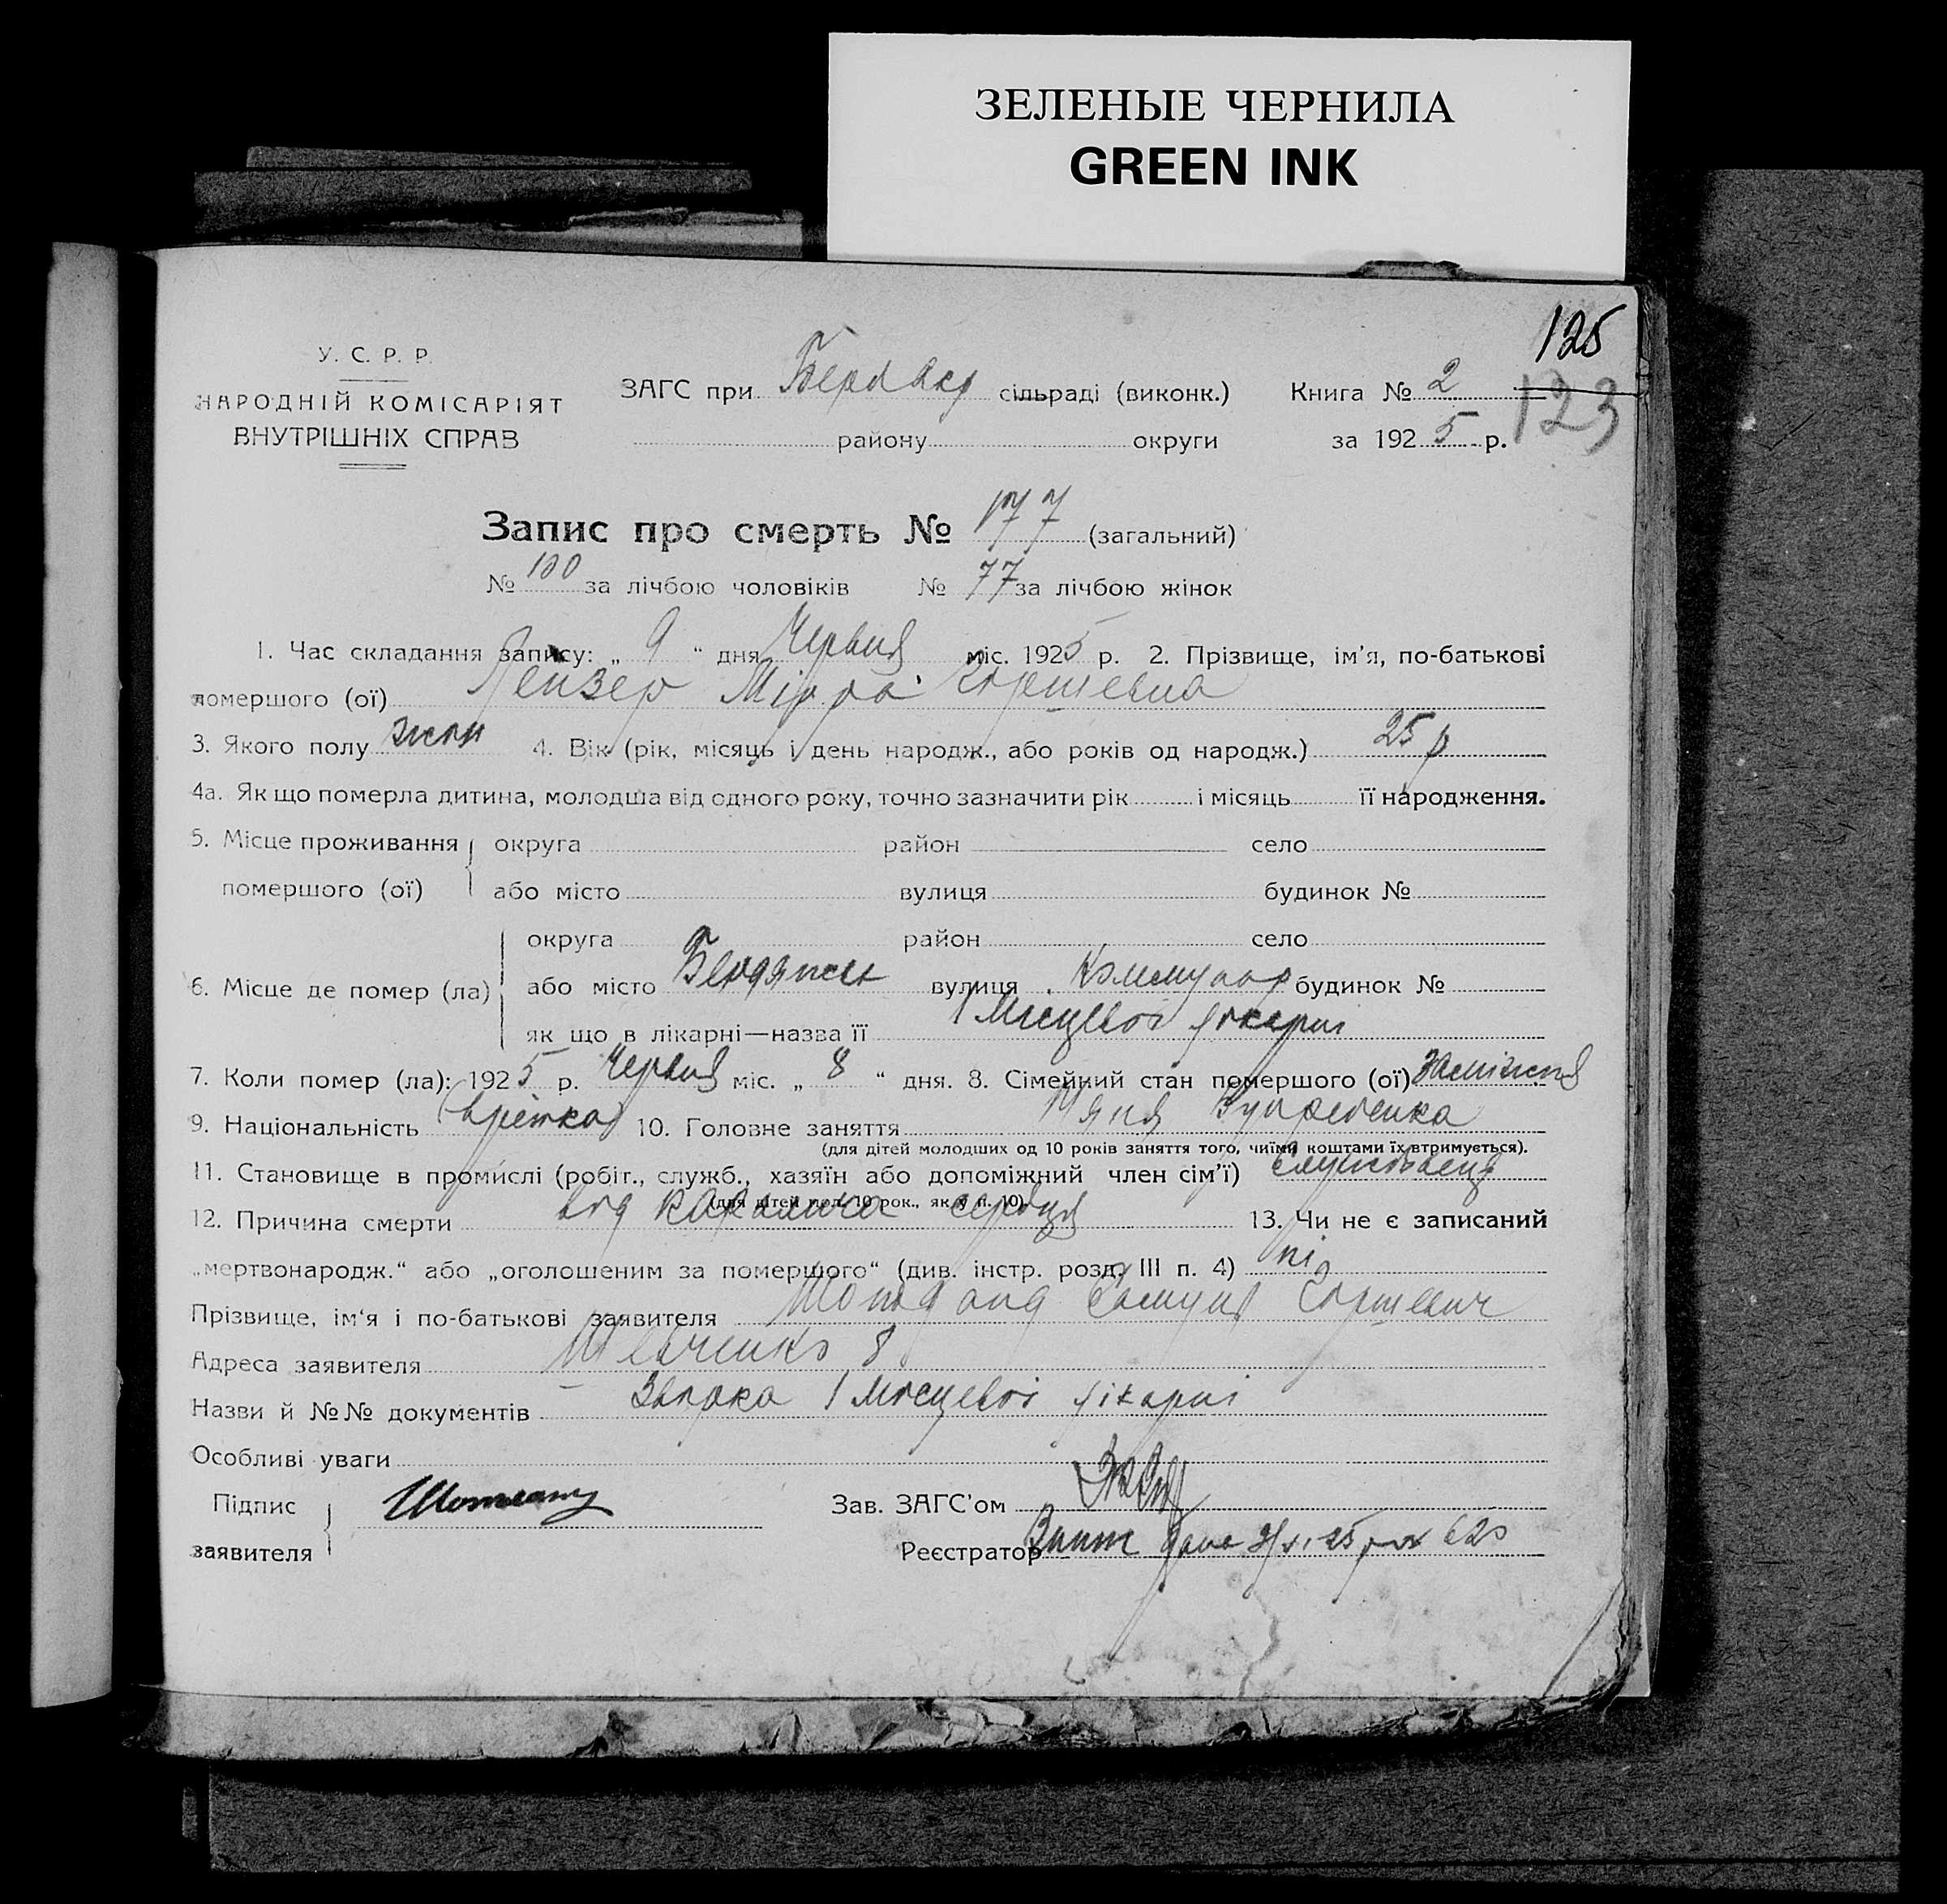 ЗЕЛЕНЫЕ ЧЕРНИЛА
GREEN INK
125
123
У. С. Р. Р.
НАРОДНІЙ КОМІСАРІЯТ
ВНУТРІШНІХ СПРАВ
ЗАГС при сільраді (виконк.) Книга № 2
району округи за 1925 р.
Запис про смерть № 177 (загальний)
№ 100 за лічбою чоловіків № 77 за лічбою жінок
1. Час складання запису: „ 9 “ дня Червня міс. 1925 р. 2. Прізвище, ім’я, по-батькові
помершого (ої) Лейзер Мірра Гершевна
3. Якого полу жін 4. Вік (рік, місяць і день народж., або років од народж.) 25 р
4а. Як що померла дитина, молодша від одного року, точно зазначити рік і місяць її народження.
5. Місце проживання округа район село
помершого (ої) або місто вулиця будинок №
округа район село
6. Місце де помер (ла) або місто вулиця Комунар будинок №
як що в лікарні—назва її 1 Місцевої лікарні
7. Коли помер (ла): 1925 р. Червня міс. „ 8 “ дня. 8. Сімейний стан помершого (ої) заміжня
9. Національність Єврейка 10. Головне заняття
(для дітей молодших од 10 років заняття того, чиїми коштами їх втримується).
11. Становище в промислі (робіт., служб., хазяїн або допоміжний член сім’ї)
(для дітей мол. 10 рок., як у п. 10)
12. Причина смерти від параліча серця 13. Чи не є записаний
„мертвонародж.“ або „оголошеним за помершого“ (див. інстр. розд. III п. 4) ні
Прізвище, ім‘я і по-батькові заявителя Самуил Гершевич
Адреса заявителя Шевченко 8
Назви й №№ документів 1 Місцевої лікарні
Особливі уваги
Підпис Зав. ЗАГС’ом
заявителя Реєстратор